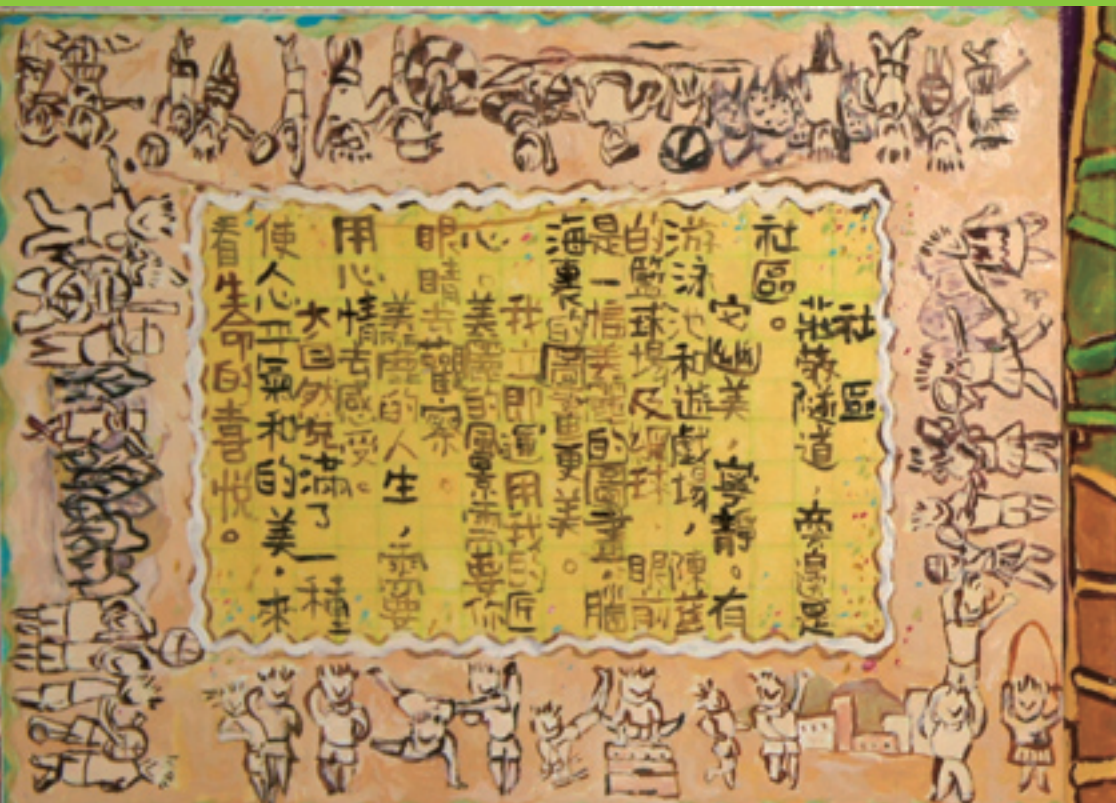 社區
莊敬隧道，旁邊是
社區。
它幽美，寧靜。有
游泳池和遊戲場，陳舊
的籃球場及網球．眼前
是一幅美麗的圖畫，腦
海裏的圖畫更美。
我立即運用我的匠
心。美麗的風景需要你
眼睛去觀察。
美麗的人生，需要
用心情去感受。
大自然充滿了一種
使人心平氣和的美，來
看生命的喜悅。